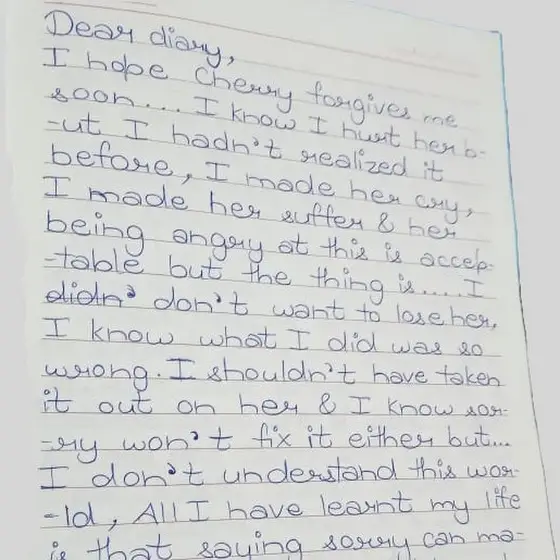 Dear diary,
I hope Cherry forgives me
soon... I know I hurt her b-
-ut I hadn't realized it
before, I made her cry,
I made her suffer & her
being angry at this is accep-
-table but the thing is.... I
didn' don't want to lose her,
I know what I did was so
wrong. I shouldn't have taken
it out on her & I know sor-
-ry won't fix it either but...
I don't understand this wor-
-ld, All I have learnt my life
is that saying sorry can ma-